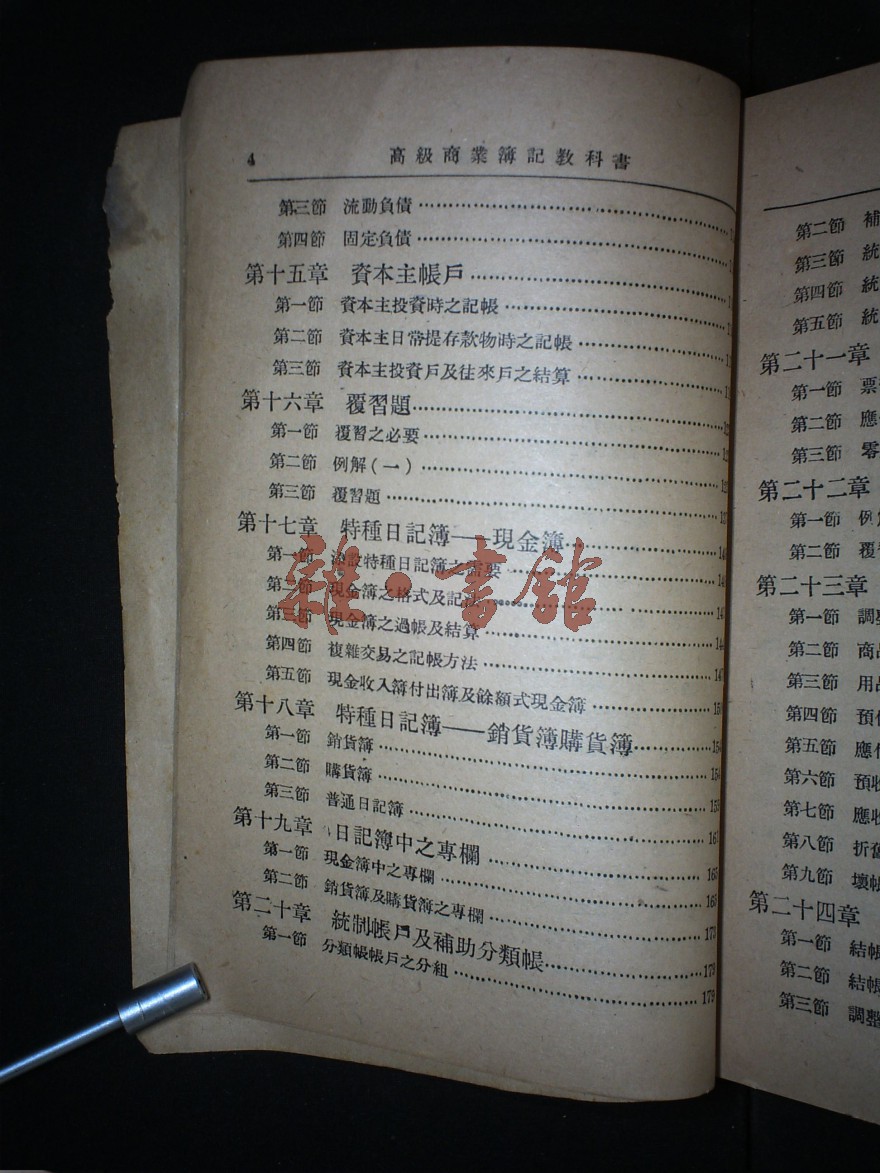 4 高級商業簿記教科書
第三節 流動負債
第四節 固定負債
第十五章 資本主帳戶
第一節 資本主投資時之記帳
第二節 資本主日常提存款物時之記帳
第三節 資本主投資戶及往來戶之結算
第十六章 覆習題
第一節 覆習之必要
第二節 例解(一)
第三節 覆習題
第十七章 特種日記簿——現金簿
第一節 添設特種日記簿之需要
第二節 現金簿之格式及記法
第三節 現金簿之過帳及結算 144
第四節 複雜交易之記帳方法 147
第五節 現金收入簿付出簿及餘額式現金簿
第十八章 特種日記簿——銷貨簿購貨簿 154
第一節 銷貨簿 154
第二節 購貨簿
第三節 普通日記簿
第十九章 日記簿中之專欄
第一節 現金簿中之專欄
第二節 銷貨簿及購貨簿之專欄
第二十章 統制帳戶及補助分類帳 179
第一節 分類帳帳戶之分組 179
雜·書館
第二節 補
第三節 統
第四節 統
第五節 統
第二十一章
第一節 票
第二節 應
第三節 零
第二十二章
第一節 例
第二節 覆
第二十三章
第一節 調整
第二節 商品
第三節 用品
第四節 預付
第五節 應付
第六節 預收
第七節 應收
第八節 折舊
第九節 壞帳
第二十四章
第一節 結帳
第二節 結帳
第三節 調整